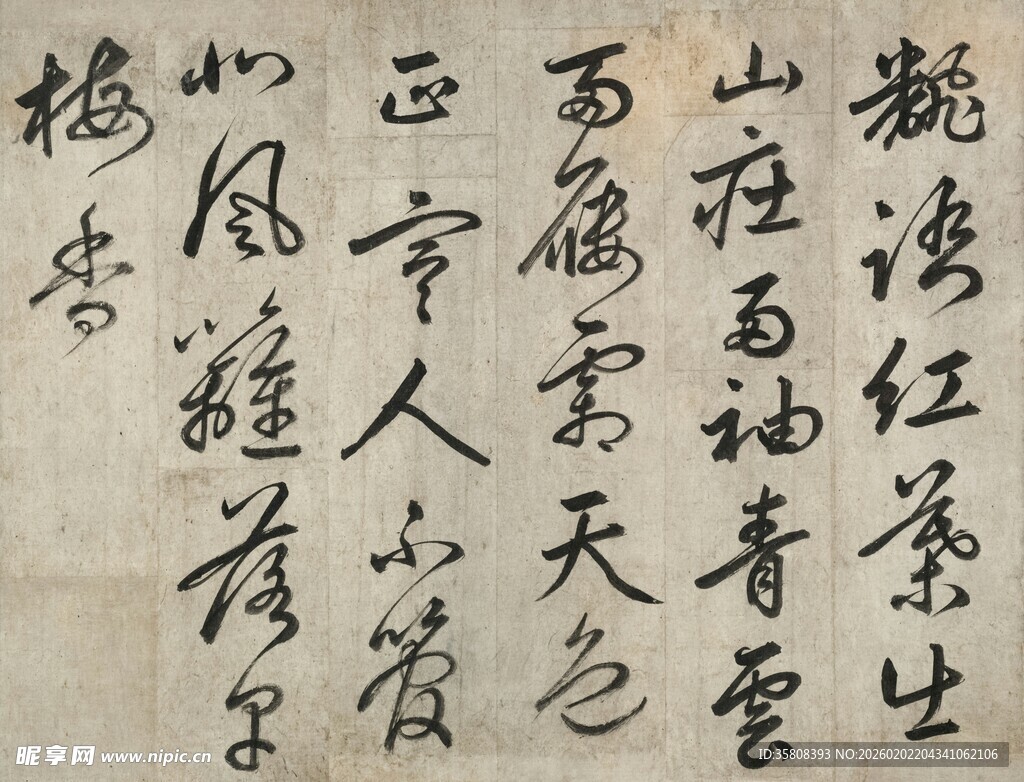 飜紅葉出
山莊兩袖青雲
兩屨霜天色
正寒人不覺
北風籬落早
梅香
昵享网 www.nipic.cn
ID:35808393 NO:20260202204341062106